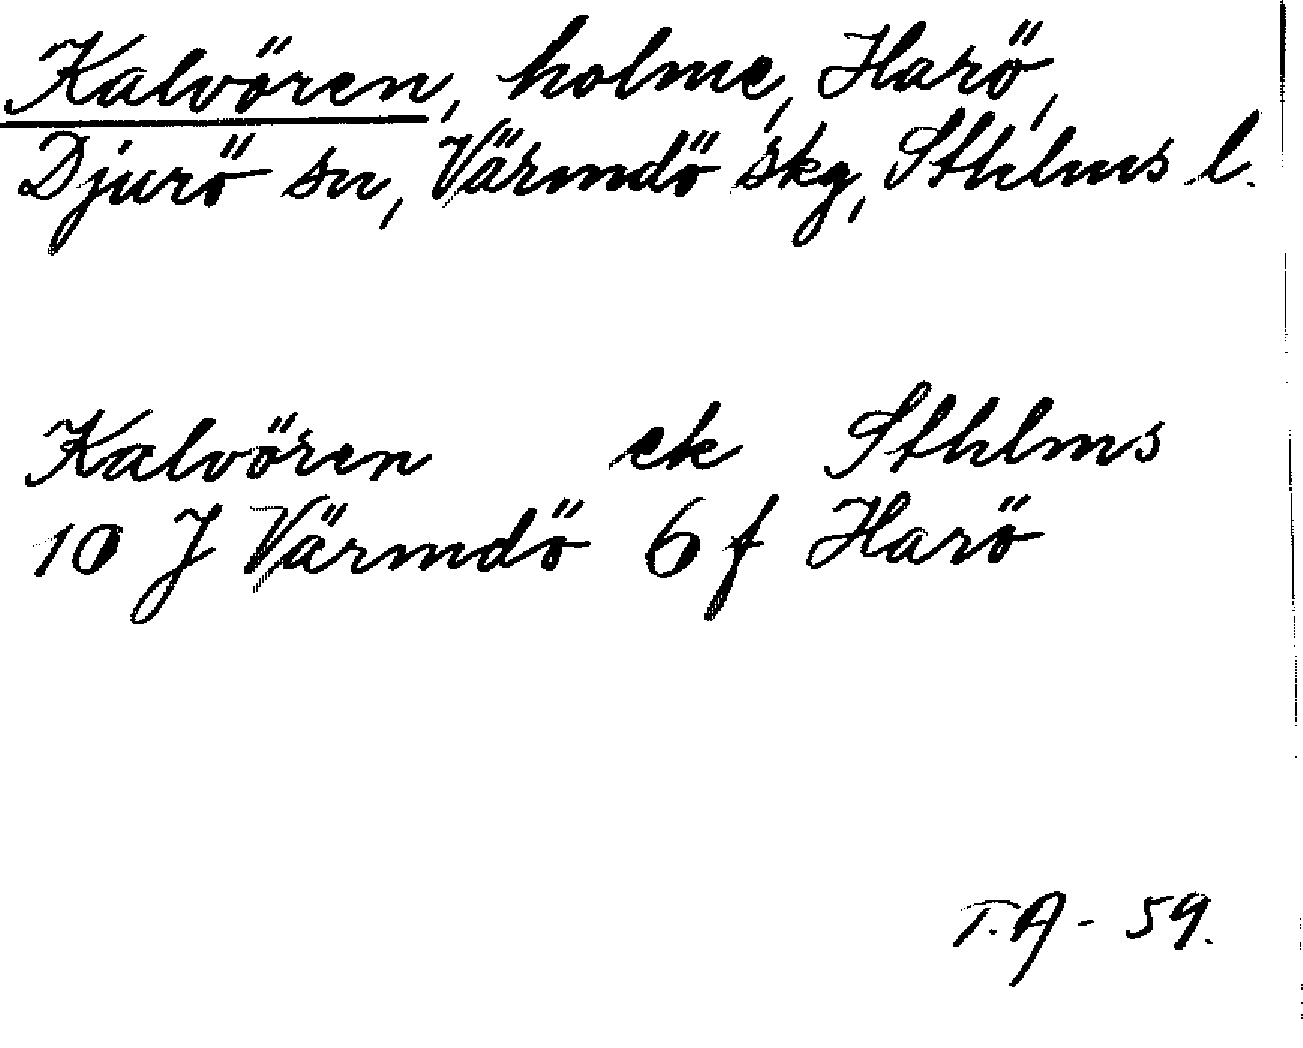 Kalvören, holme, Harö,
Djurö sn, Värmdö skg, Sthlms l.
Kalvören ek Sthlms
10 J Värmdö 6 f Harö
T. A - 59.